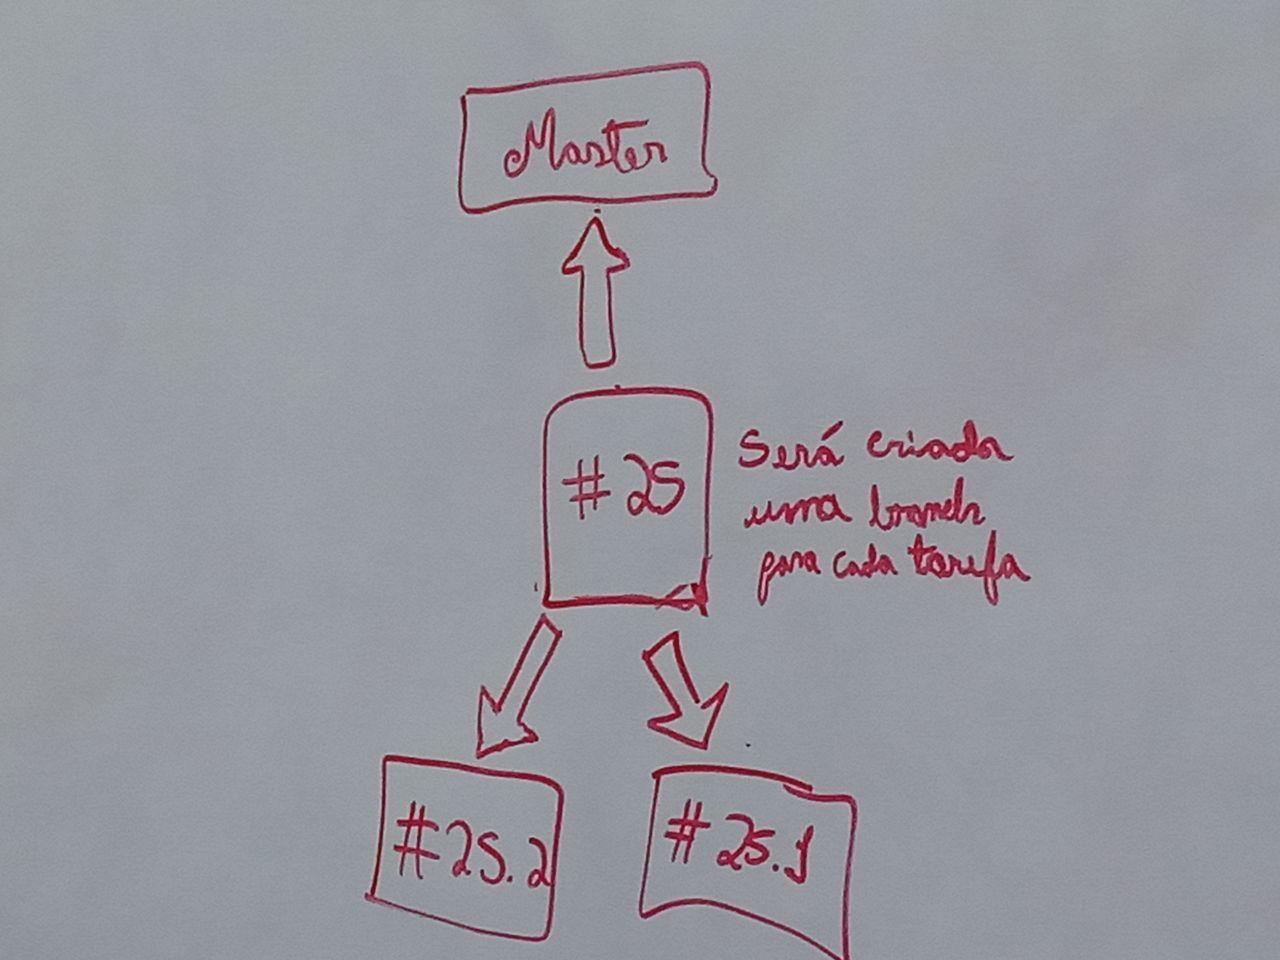 Master
#25
Será criada
uma branch
para cada tarefa
#25.2
#25.1